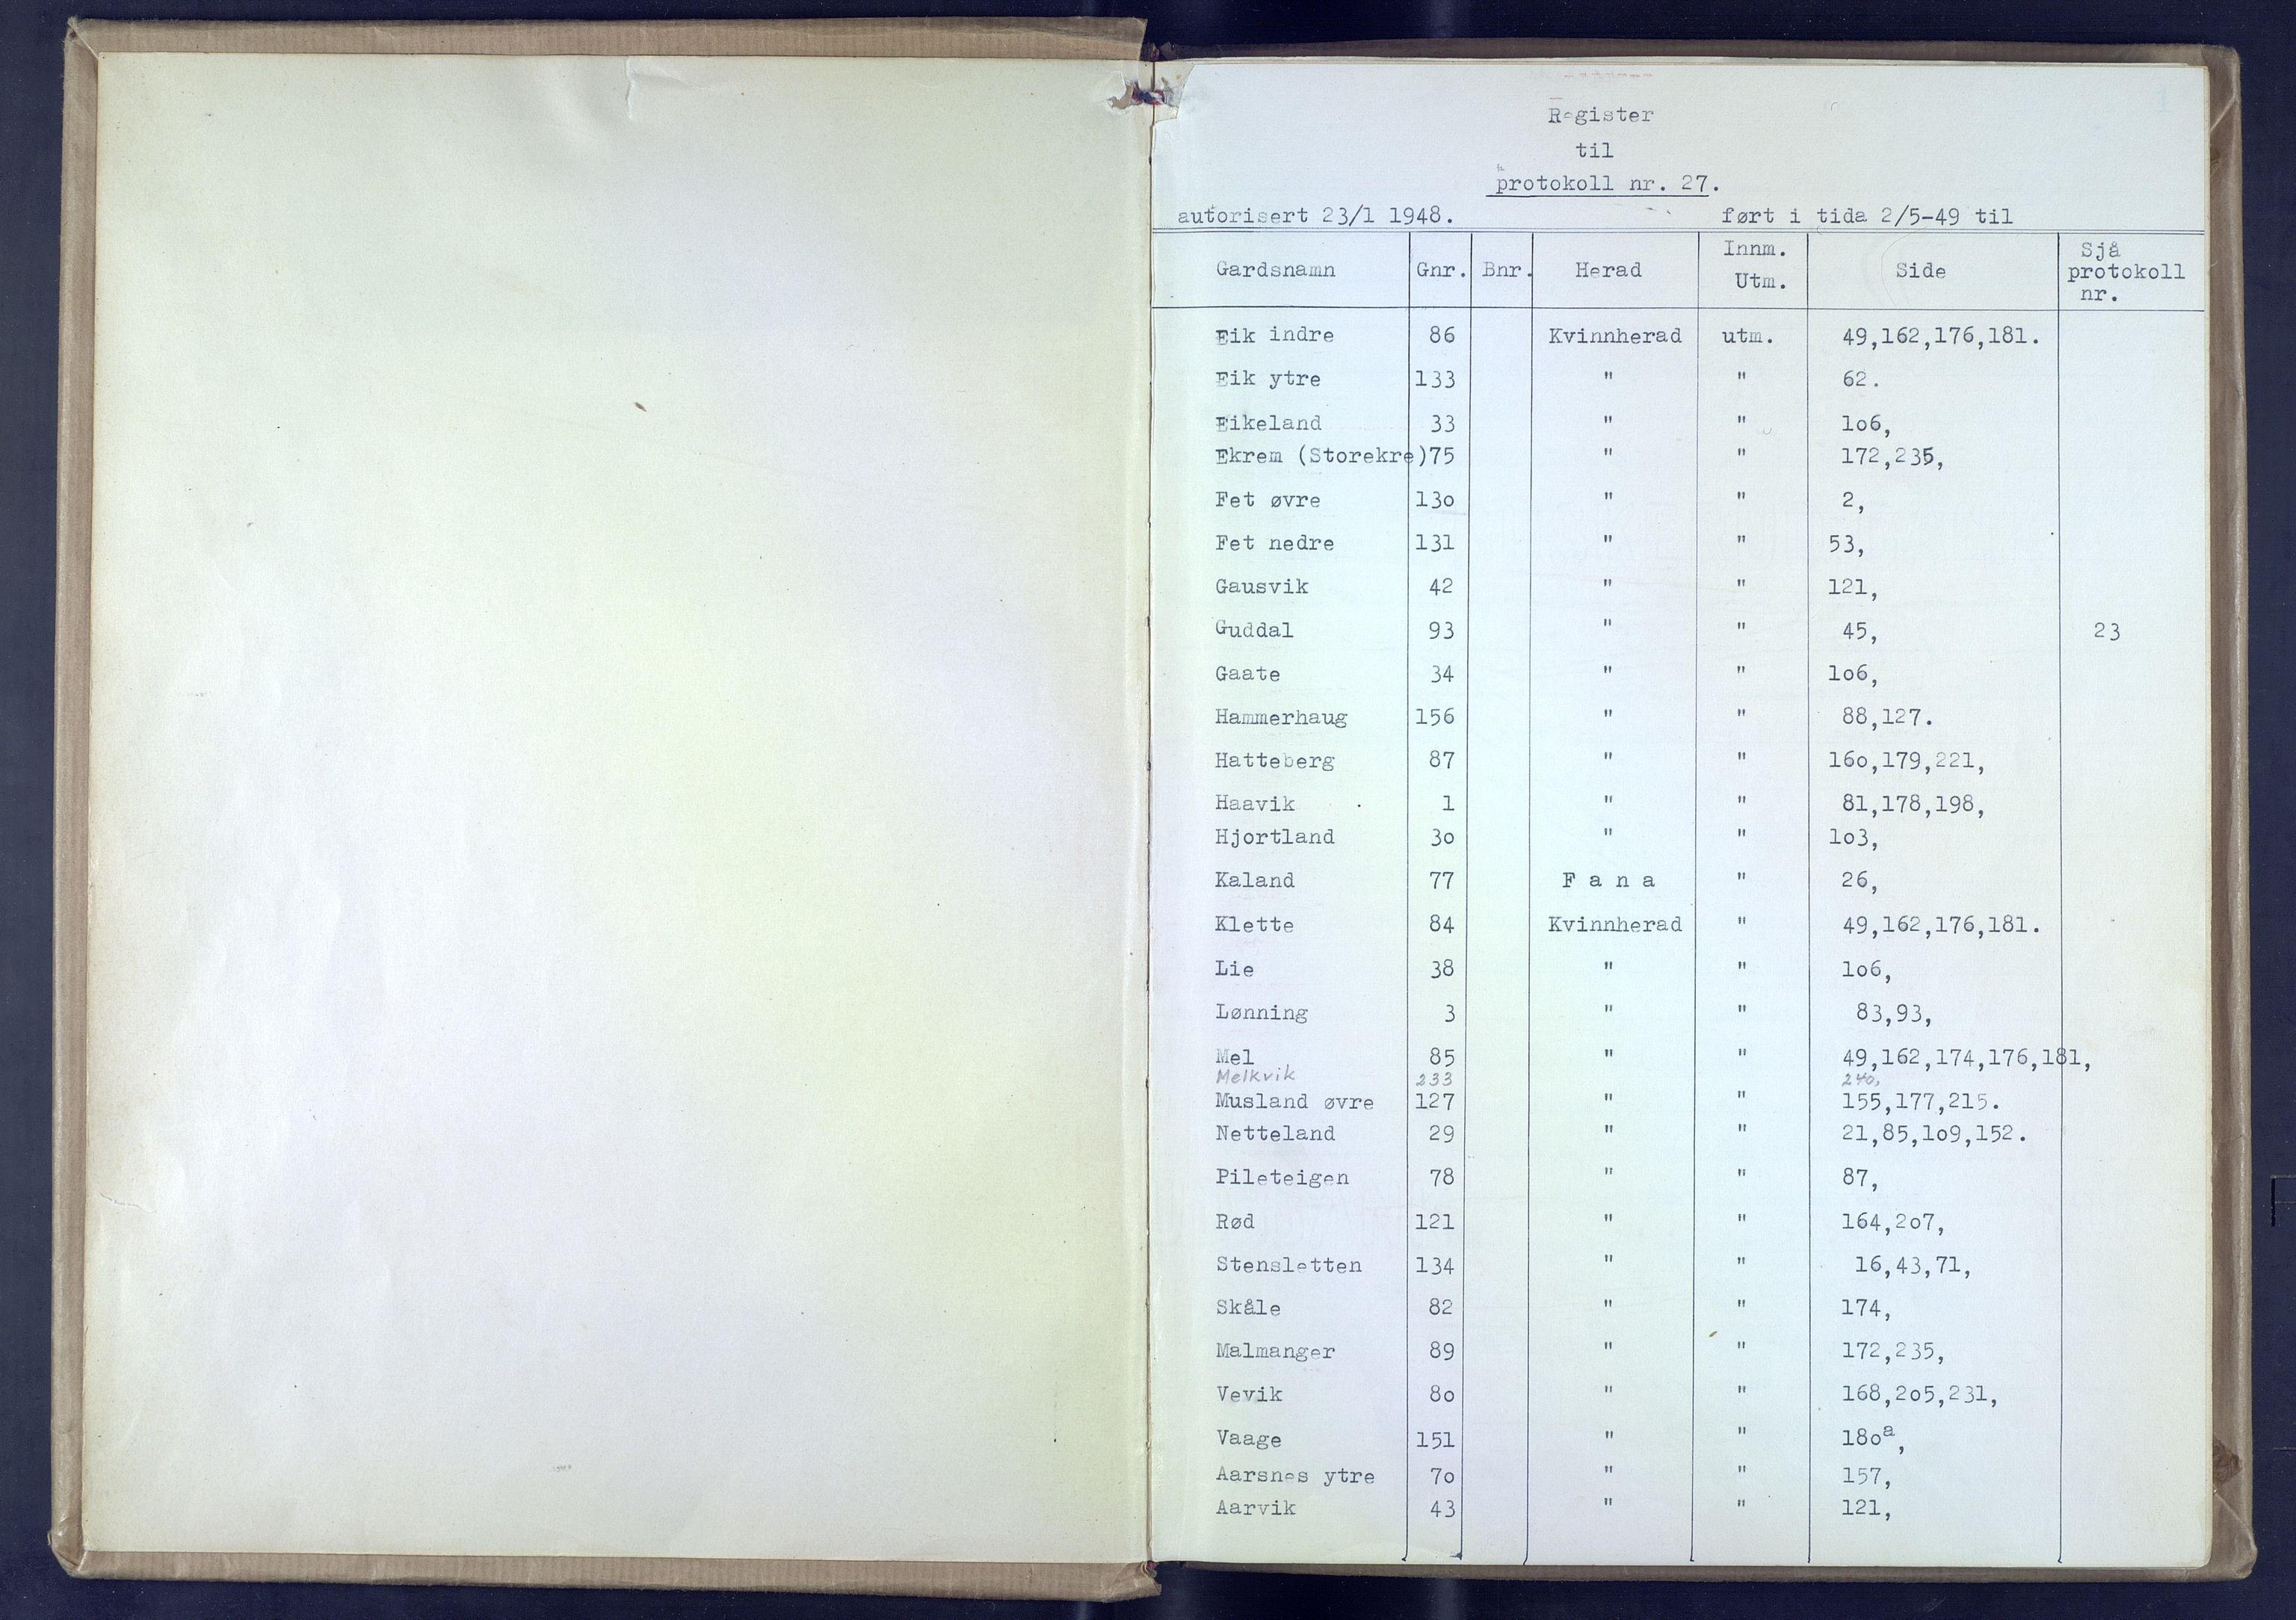 Register
til
protokoll nr. 27.
autorisert 23/1 1948. ført i tida 2/5-49 til
Gardsnamn Gnr. Bnr. Herad Innm. Utm. Side Sjå protokoll nr.
Eik indre 86 Kvinnherad utm. 49,162,176,181.
Eik ytre 133 " " 62.
Eikeland 33 " " lo6,
Ekrem (Storekre)75 " " 172,235,
Fet øvre 13o " " 2,
Fet nedre 131 " " 53,
Gausvik 42 " " 121,
Guddal 93 " " 45, 23
Gaate 34 " " lo6,
Hammerhaug 156 " " 88,127.
Hatteberg 87 " " 16o,179,221,
Haavik 1 " " 81,178,198,
Hjortland 3o " " lo3,
Kaland 77 F a n a " 26,
Klette 84 Kvinnherad " 49,162,176,181.
Lie 38 " " lo6,
Lønning 3 " " 83,93,
Mel 85 " " 49,162,174,176,181,
Melkvik 233 240,
Musland øvre 127 " " 155,177,215.
Netteland 29 " " 21,85,lo9,152.
Pileteigen 78 " " 87,
Rød 121 " " 164,2o7,
Stensletten 134 " " 16,43,71,
Skåle 82 " " 174,
Malmanger 89 " " 172,235,
Vevik 8o " " 168,2o5,231,
Vaage 151 " " 18oa,
Aarsnes ytre 7o " " 157,
Aarvik 43 " " 121,